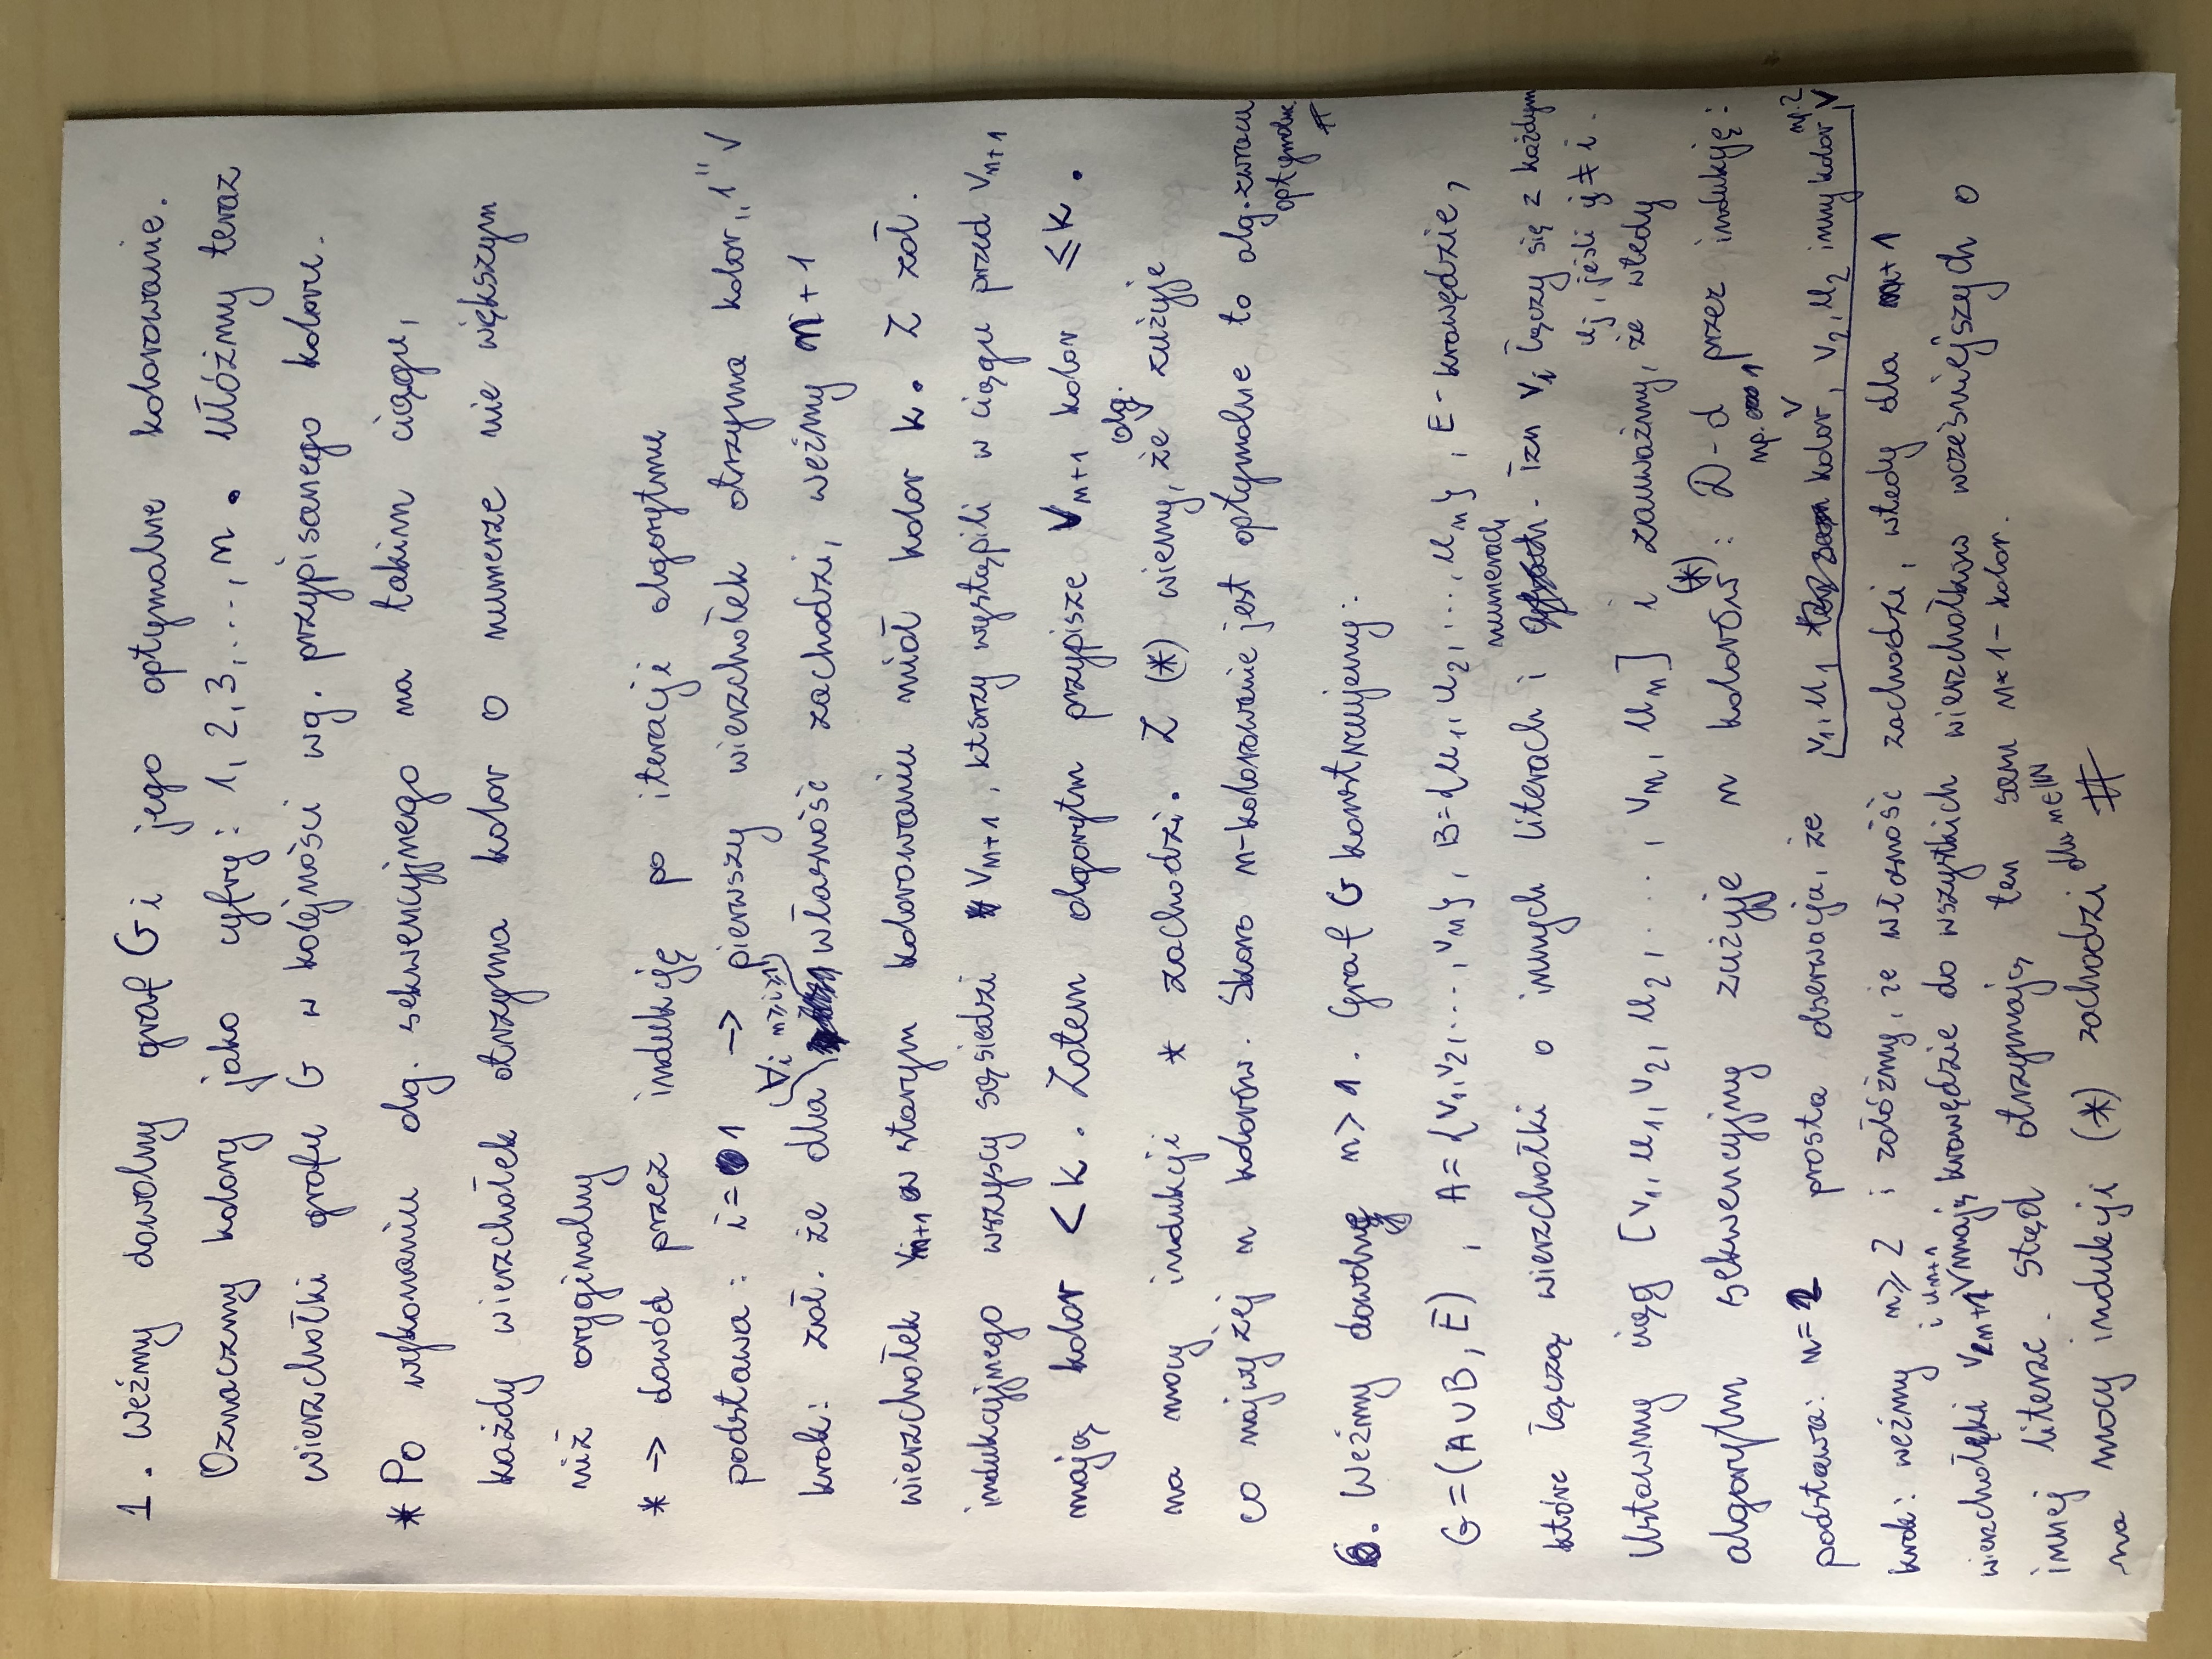 1. Weźmy dowolny graf G i jego optymalne kolorowanie.
Oznaczmy kolory jako cyfry: 1, 2, 3, ..., n. Ułóżmy teraz
wierzchołki grafu G w kolejności wg. przypisanego koloru.
* Po wykonaniu alg. sekwencyjnego na takim ciągu,
każdy wierzchołek otrzyma kolor o numerze nie większym
niż oryginalny
* → dowód przez indukcję po iteracji algorytmu
podstawa: i = 1 → pierwszy wierzchołek otrzyma kolor „1" ✓
(∀i n≥i≥1)
krok: zał. że dla własność zachodzi, weźmy n+1
wierzchołek vn+1 w starym kolorowaniu miał kolor k. Z zał.
indukcyjnego wszyscy sąsiedzi vn+1, którzy wystąpili w ciągu przed vn+1
mają kolor < k. Zatem algorytm przypisze vn+1 kolor ≤ k.
alg.
na mocy indukcji * zachodzi. Z (*) wiemy, że zużyje
co najwyżej n kolorów. Skoro n-kolorowanie jest optymalne to alg. zwraca
optymalne.
#
6. Weźmy dowolne n > 1. Graf G konstruujemy:
G = (A∪B, E), A = {v1, v2, ..., vn}, B = {u1, u2, ..., un}, E - krawędzie,
numerach
które łączą wierzchołki o innych literach i - tzn vi łączy się z każdym
uj, jeśli j ≠ i.
Ustawmy ciąg [v1, u1, v2, u2, ..., vn, un] i zauważmy, że wtedy
algorytm sekwencyjny zużyje n kolorów(*): D-d przez indukcję:
np. 1
podstawa: n = 2 prosta obserwacja, że v1, u1 kolor, v2, u2 inny kolor, np. 2
krok: weźmy n ≥ 2 i załóżmy, że własność zachodzi, wtedy dla n+1
i un+1
wierzchołki vn+1 mają krawędzie do wszystkich wierzchołków wcześniejszych o
innej literze. Stąd otrzymają ten sam n+1 - kolor.
na mocy indukcji (*) zachodzi dla n∈ℕ
#